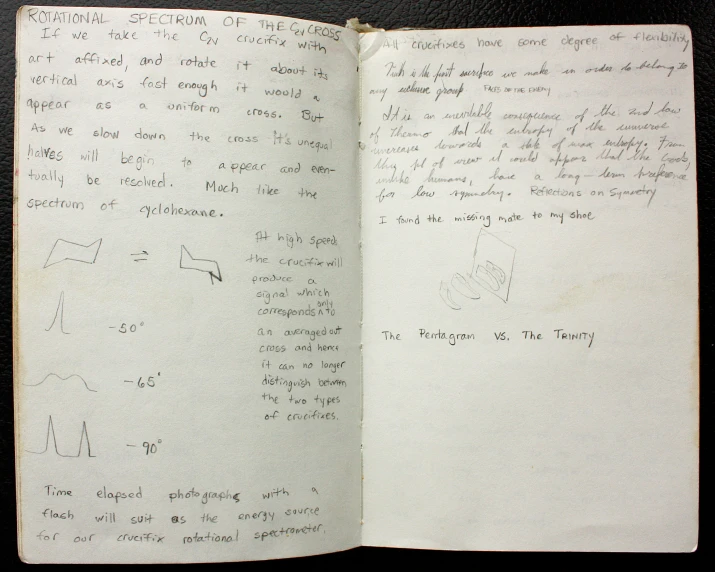 ROTATIONAL SPECTRUM OF THE C2V CROSS
If we take the C2V crucifix with
art affixed, and rotate it about its
vertical axis fast enough it would a
appear as a uniform cross. But
As we slow down the cross it's unequal
halves will begin to appear and even-
tually be resolved. Much like the
spectrum of cyclohexane.
⇌
-50°
-65°
-90°
At high speeds
the crucifix will
produce a
signal which
corresponds only to
an averaged out
cross and hence
it can no longer
distinguish between
the two types
of crucifixes.
Time elapsed photographs with a
flash will suit as the energy source
for our crucifix rotational spectrometer.
All crucifixes have some degree of flexibility
Truth is the first sacrifice we make in order to belong to
any exclusive group FACES OF THE ENEMY
It is an inevitable consequence of the 2nd law
of Thermo that the entropy of the universe
increases towards a state of max entropy. From
this pt of view it would appear that the Gods,
unlike humans, have a long-term preference
for low symmetry. Reflections on Symmetry
I found the missing mate to my shoe
The Pentagram VS. The TRINITY